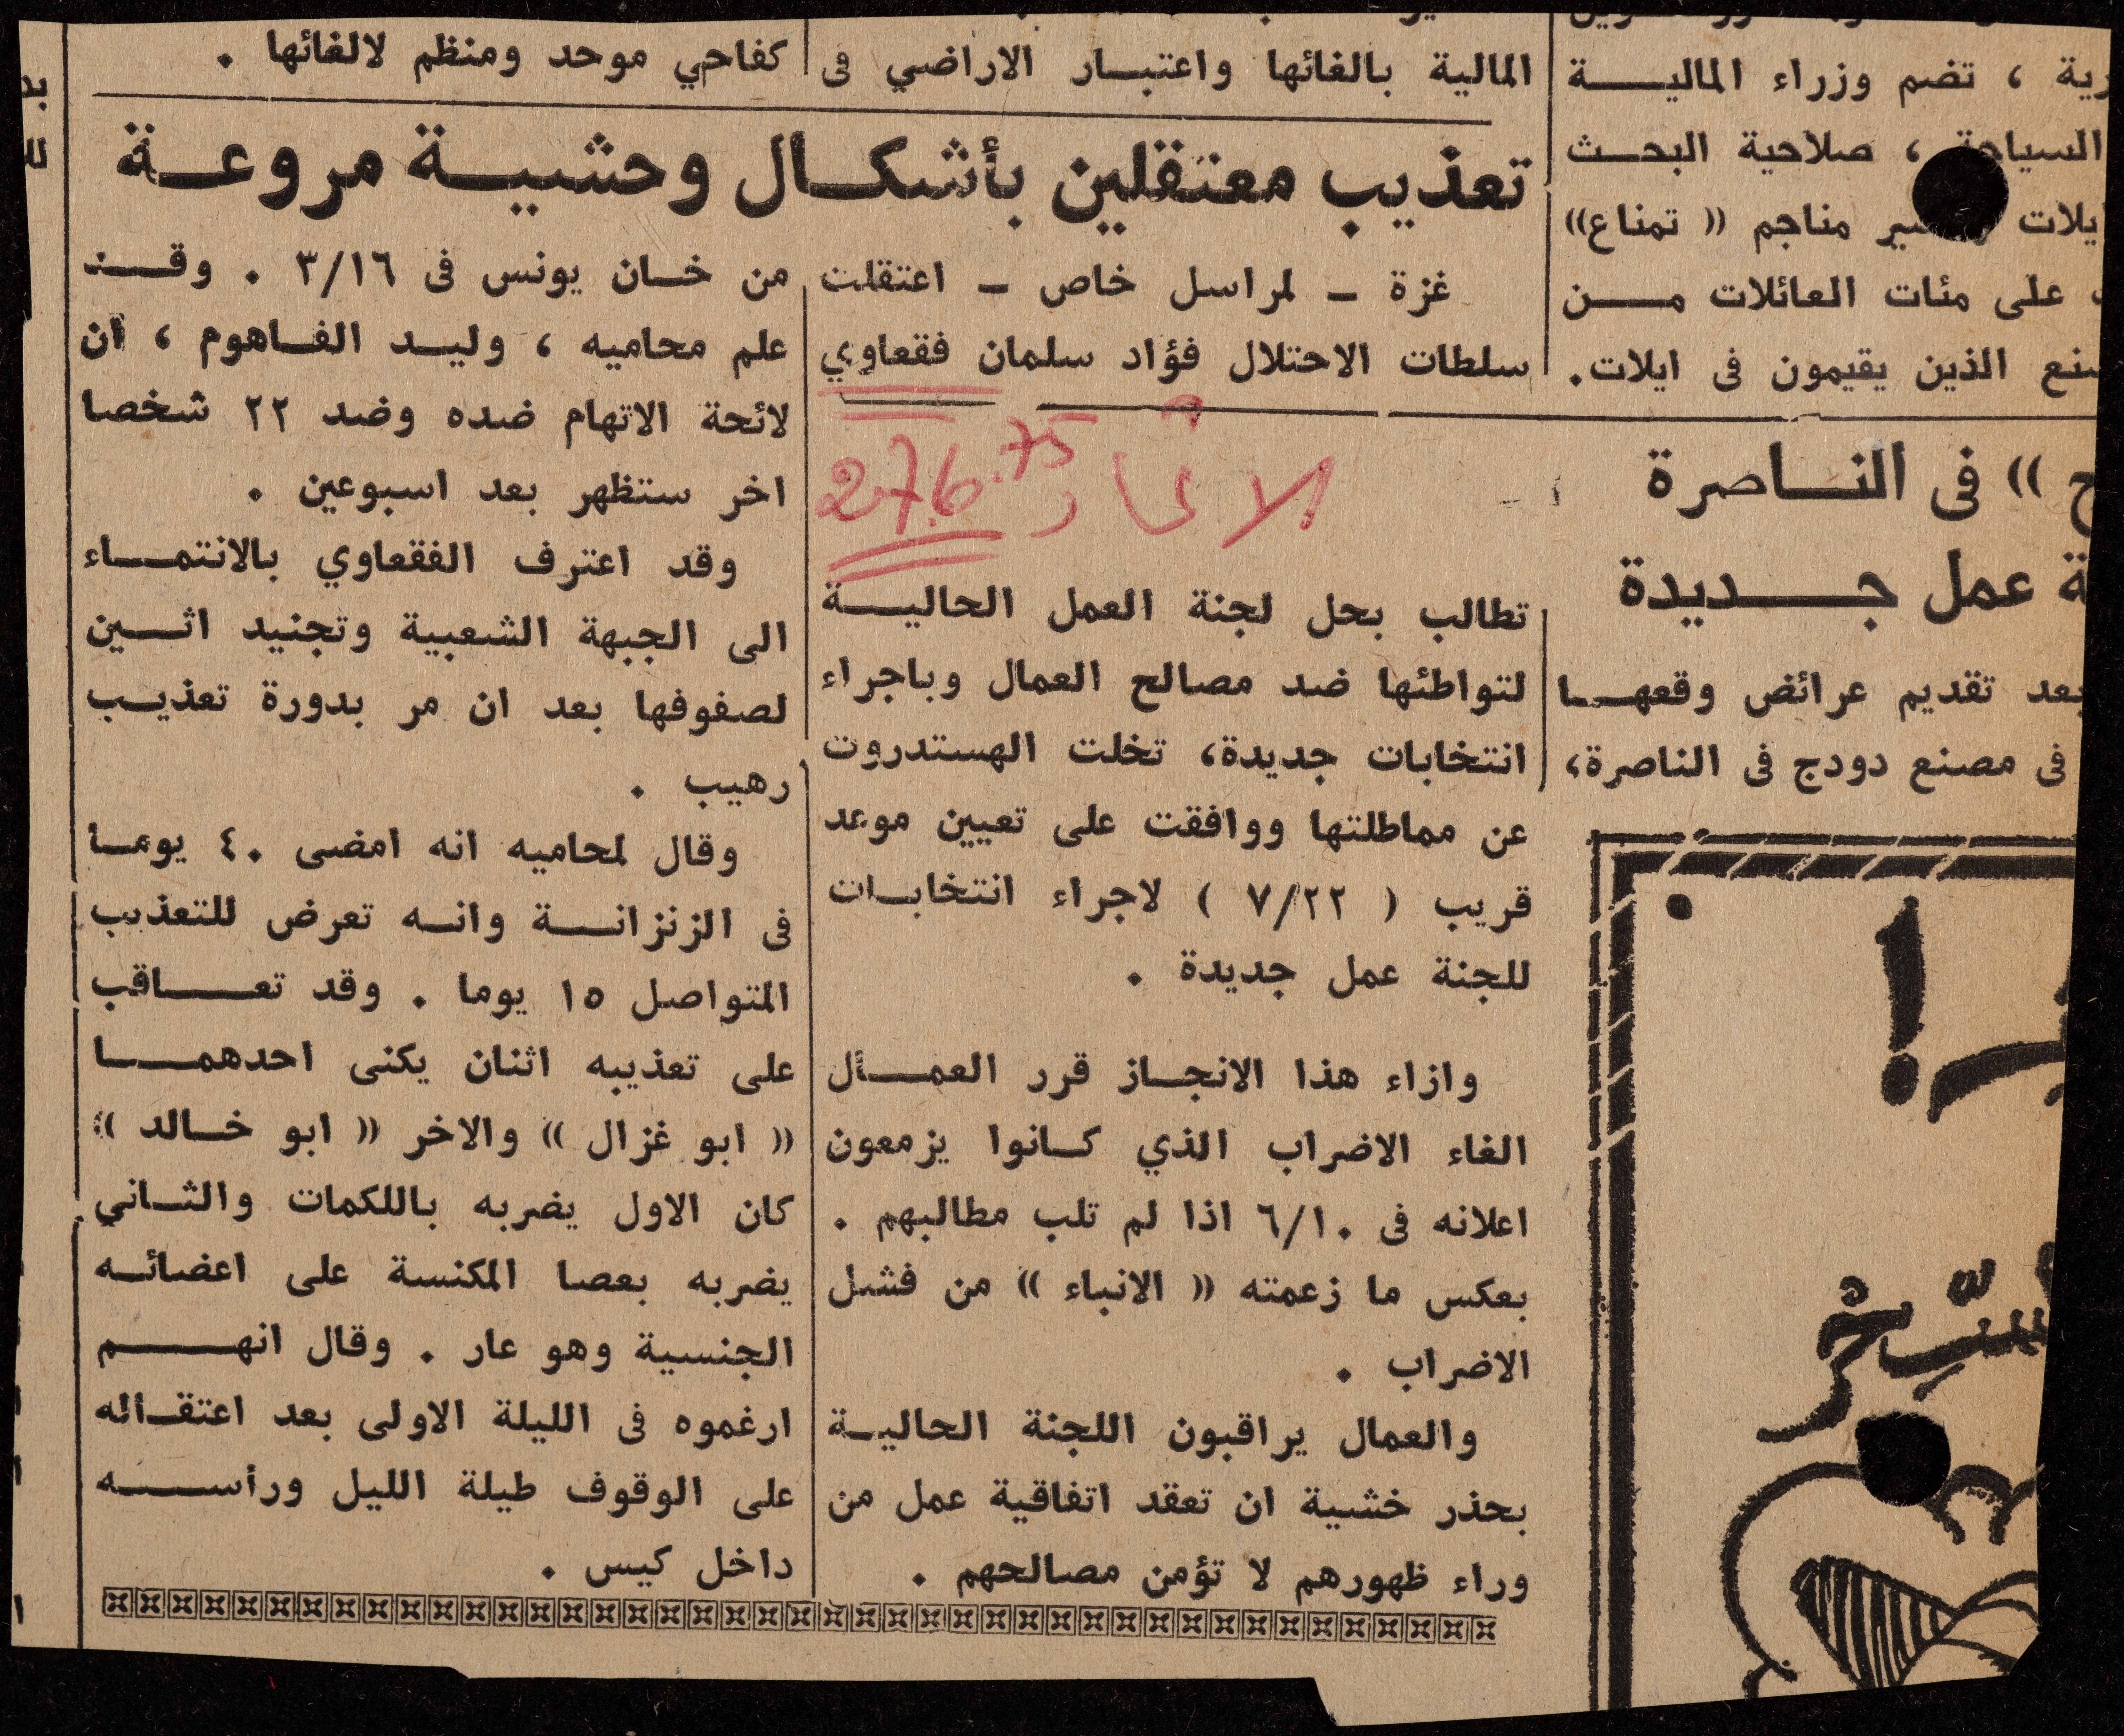 رية ، تضم وزراء الماليـــة
السياحة ، صلاحية البحث
يلات مناجم « تمناع»
على مئات العائلات مـــن
الذين يقيمون فى ايلات.
المالية بالغائها واعتبـار الاراضي فى
كفاحي موحد ومنظم لالغائها .
تعذيب معتقلين بأشكــال وحشيــة مروعــة
غزة – لمراسل خاص – اعتقلت
سلطات الاحتلال فؤاد سلمان فقعاوي
من خـان يونس فى ٣/١٦ . وقــد
علم محاميه ، وليـد الفـاهوم ، ان
لائحة الاتهام ضده وضد ٢٢ شخصا
اخر ستظهر بعد اسبوعين .
وقد اعترف الفقعاوي بالانتمــاء
الى الجبهة الشعبية وتجنيد اثــين
لصفوفها بعد ان مر بدورة تعذيـب
رهيب .
وقال لمحاميه انه امضى ٤٠ يومـا
فى الزنزانــة وانـه تعرض للتعذيب
المتواصل ١٥ يوما . وقد تعــاقب
على تعذيبه اثنان يكنى احدهمــا
« ابو غزال » والاخر « ابو خـالد »
كان الاول يضربه باللكمات والثـاني
يضربه بعصا المكنسة على اعضائـه
الجنسية وهو عار . وقال انهــم
ارغموه فى الليلة الاولى بعد اعتقـاله
على الوقوف طيلة الليل ورأســه
داخل كيس .
الاتحاد 27.6.75
ح » فى النــاصرة
ة عمل جــديدة
بعد تقديم عرائض وقعهــا
فى مصنع دودج فى الناصرة،
تطالب بحل لجنة العمل الحاليــة
لتواطئها ضد مصالح العمال وباجراء
انتخابات جديدة، تخلت الهستدروت
عن مماطلتها ووافقت على تعيين موعد
قريب ( ٧/٢٢ ) لاجراء انتخابـات
للجنة عمل جديدة .
وازاء هذا الانجـاز قرر العمــال
الغاء الاضراب الذي كـانوا يزمعون
اعلانه فى ٦/١٠ اذا لم تلب مطالبهم .
بعكس ما زعمته « الانباء » من فشل
الاضراب .
والعمال يراقبون اللجنة الحاليـة
بحذر خشية ان تعقد اتفاقية عمل من
وراء ظهورهم لا تؤمن مصالحهم .